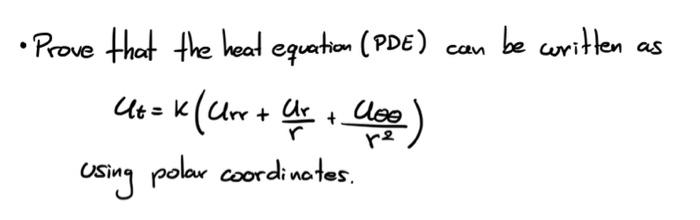 • Prove that the heat equation (PDE) can be written as
Ut = K(Urr + Ur/r + Uθθ/r²)
using polar coordinates.